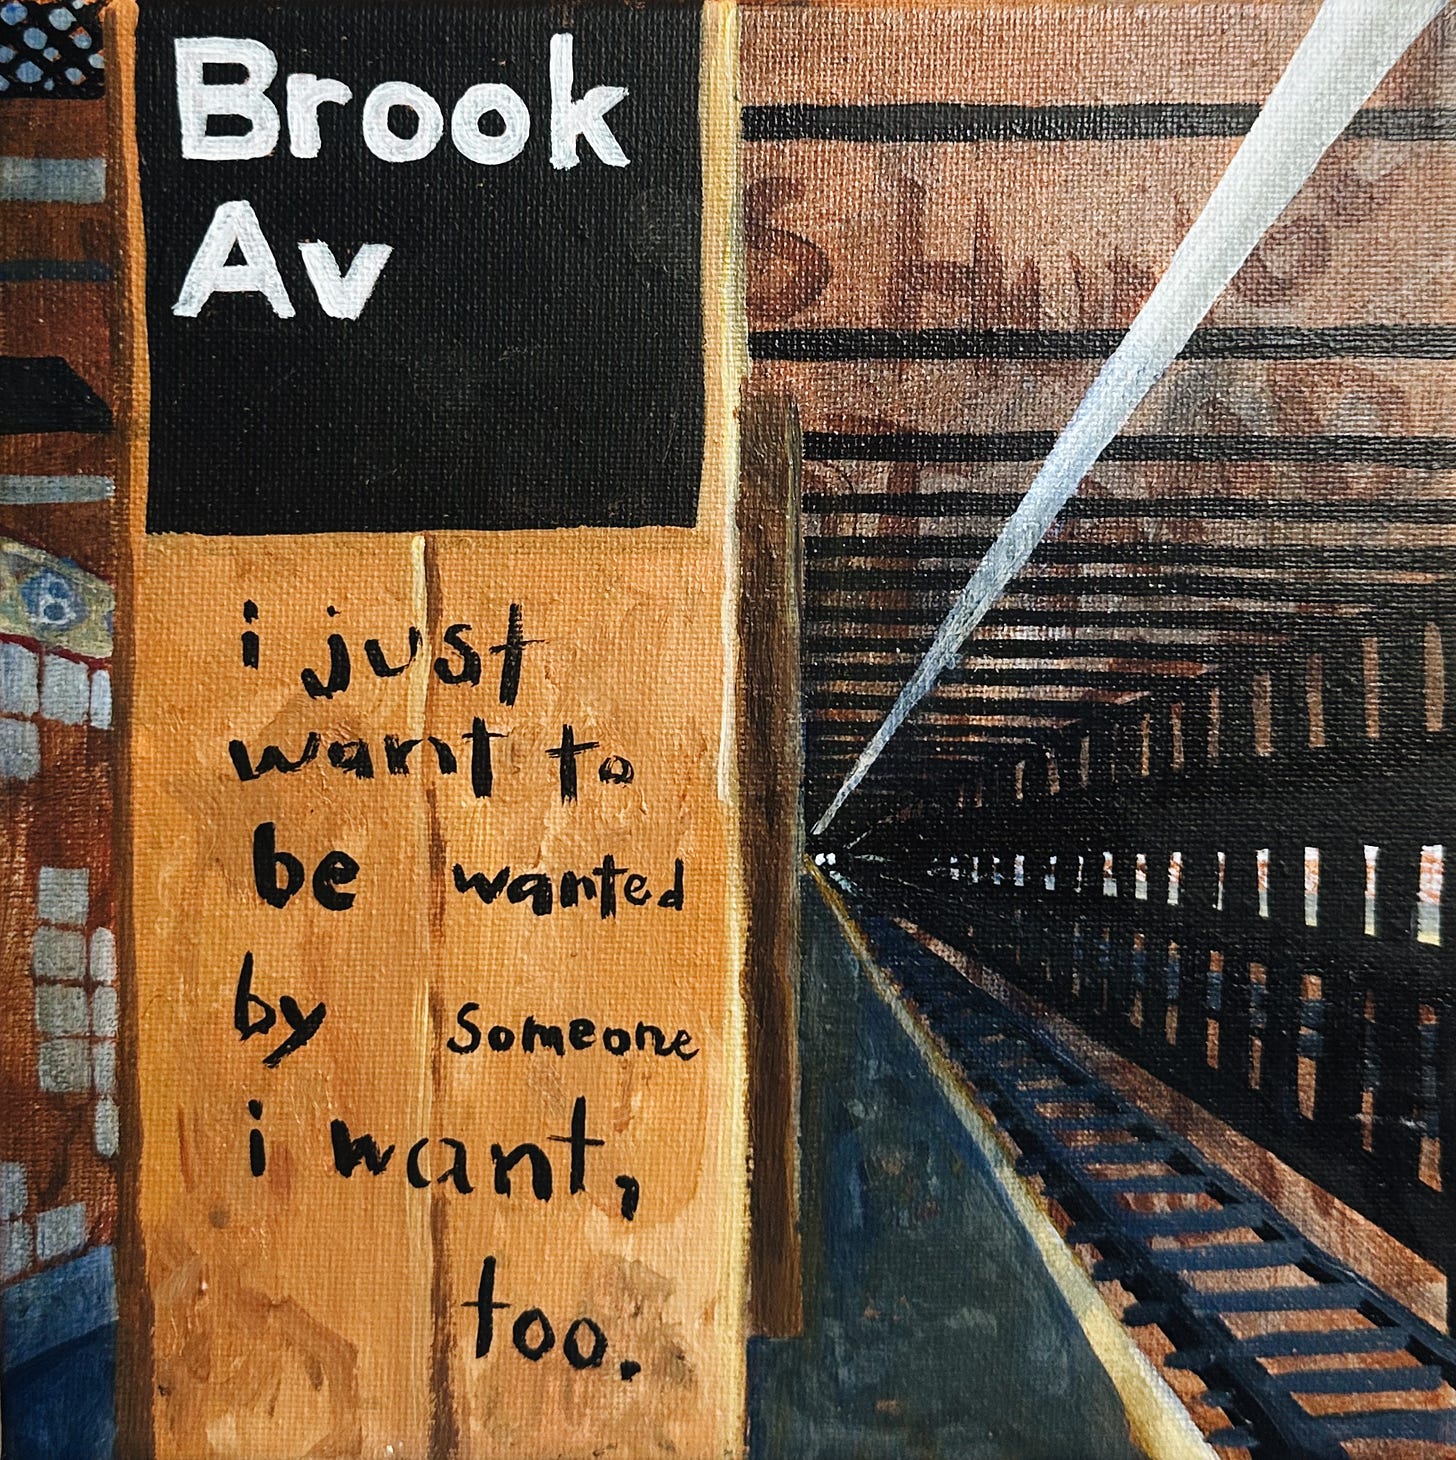 Brook
Av
i just
want to
be wanted
by someone
i want,
too.